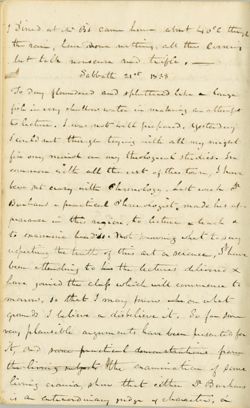 I Dined at Mr. B's came home about 4 o'c through
the rain, have done nothing, all this evening
but talk nonsense and trifle. —
Sabbath 21st 1838
To day floundered and spluttered like a large
fish in very shallow water in making an attempt
to lecture. I was not well prepared, yesterday
I could not though trying with all my might
fix my mind on my theological studies. In
common with all the rest of this town, I have
been set crazy with Phrenology. Last week Dr
Buchanan a practical Phrenologist, made his ap-
pearance in this region, to lecture, teach &
to examine heads. Not knowing what to say
respecting the truth of this art or science, I have
been attending to his the lectures delivered &
have joined the class which will commence to
morrow, so that I may know why on what
grounds I believe or disbelieve it. So far some
very plausible arguments have been presented for
it, and some practical demonstrations from
the living subject the examination of some
living crania, show that either Dr Buchanan
is an extraordinary judge of character, or